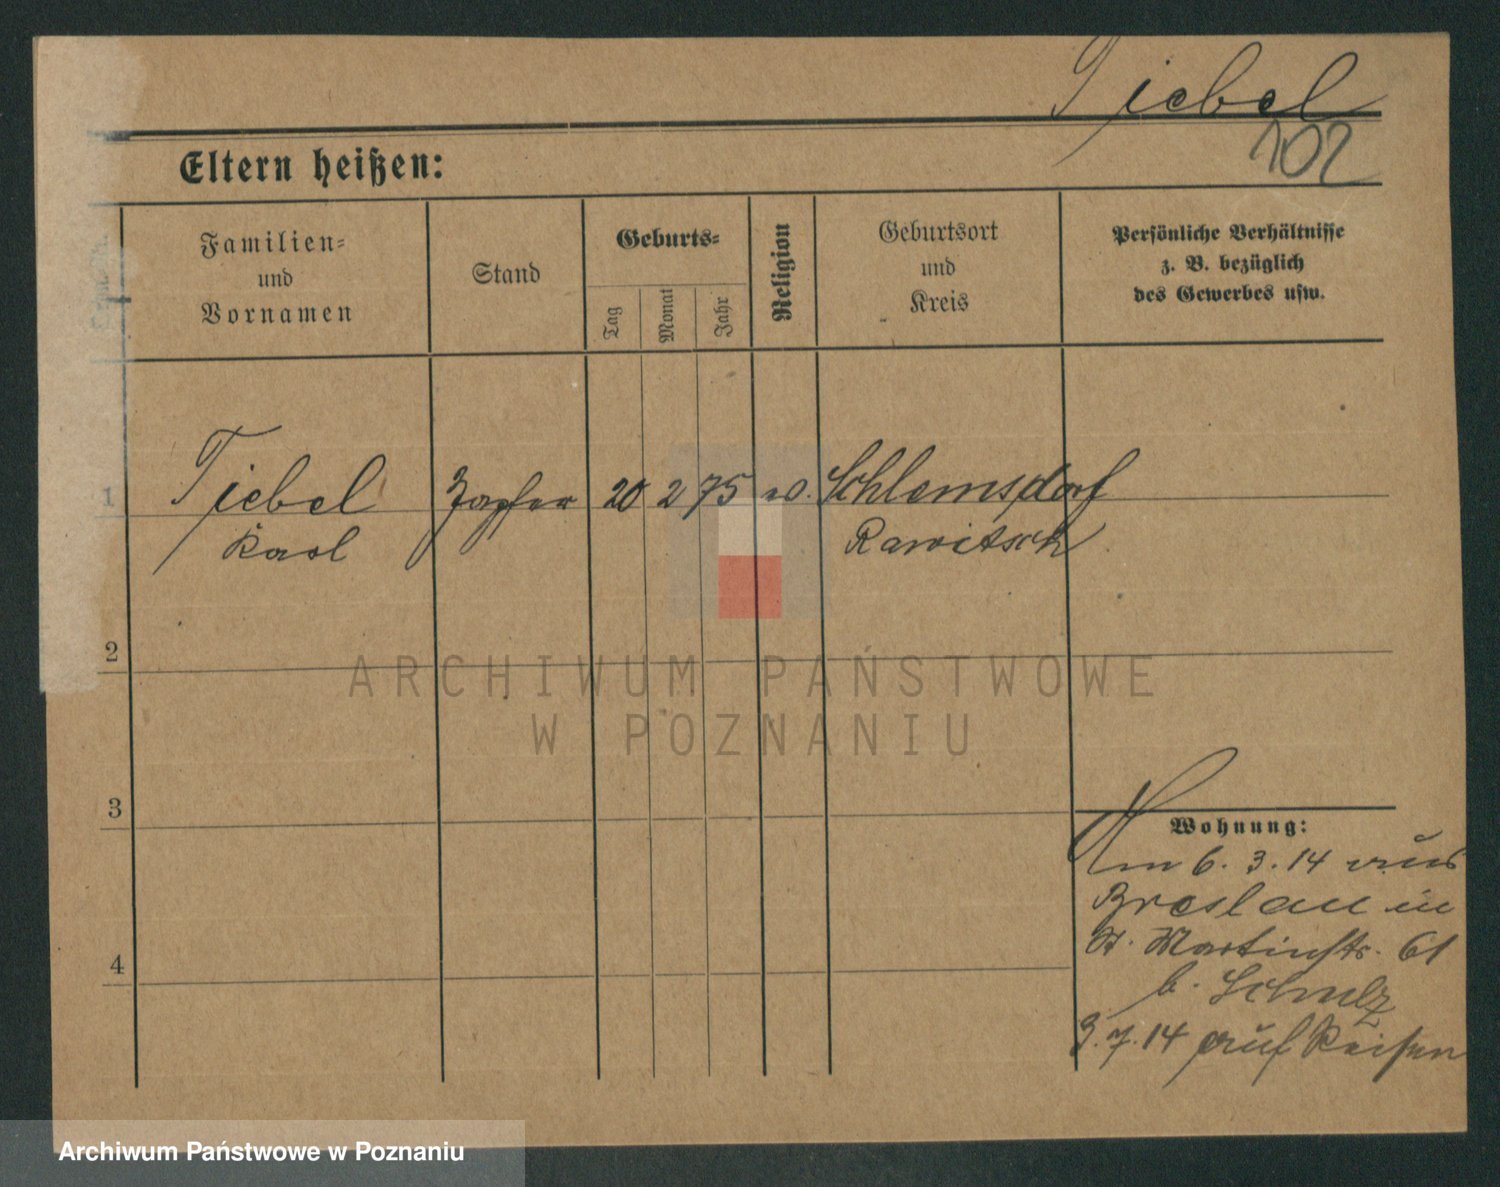 Tiebel
102
Eltern heißen:
Familien-
und
Vornamen
Stand
Geburts-
Tag
Monat
Jahr
Religion
Geburtsort
und
Kreis
Persönliche Verhältnisse
z. B. bezüglich
des Gewerbes usw.
1
Tiebel Zapfer 20 2 75 Schlemsdorf
Karl Rawitsch
2
3
4
Wohnung:
Am 6. 3. 14 aus
Breslau in
St. Martinstr. 61
b. Schulz
3. 7. 14 auf Reisen
ARCHIWUM PAŃSTWOWE
W POZNANIU
Archiwum Państwowe w Poznaniu